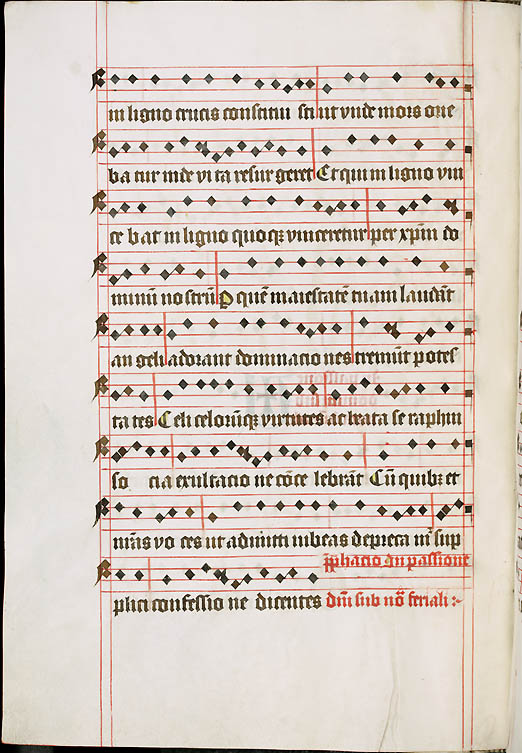 in ligno crucis constitui sti ut vnde mors orie
ba tur inde vi ta resur geret Et qui in ligno vin
ce bat in ligno quo qz vinceretur per xpm do
minũ no strũ P quẽ maiestatẽ tuam laudãt
an geli adorant dominacio nes tremũt potes
ta tes Celi celorũqz virtutes ac beata se raphin
so cia exultacio ne cõce lebrãt Cũ quibz et
nr̃as vo ces ut admitti iubeas depreca mr̃ sup
p̃phacio In passione
plici confessio ne dicentes dñi sub nõ feriali :-